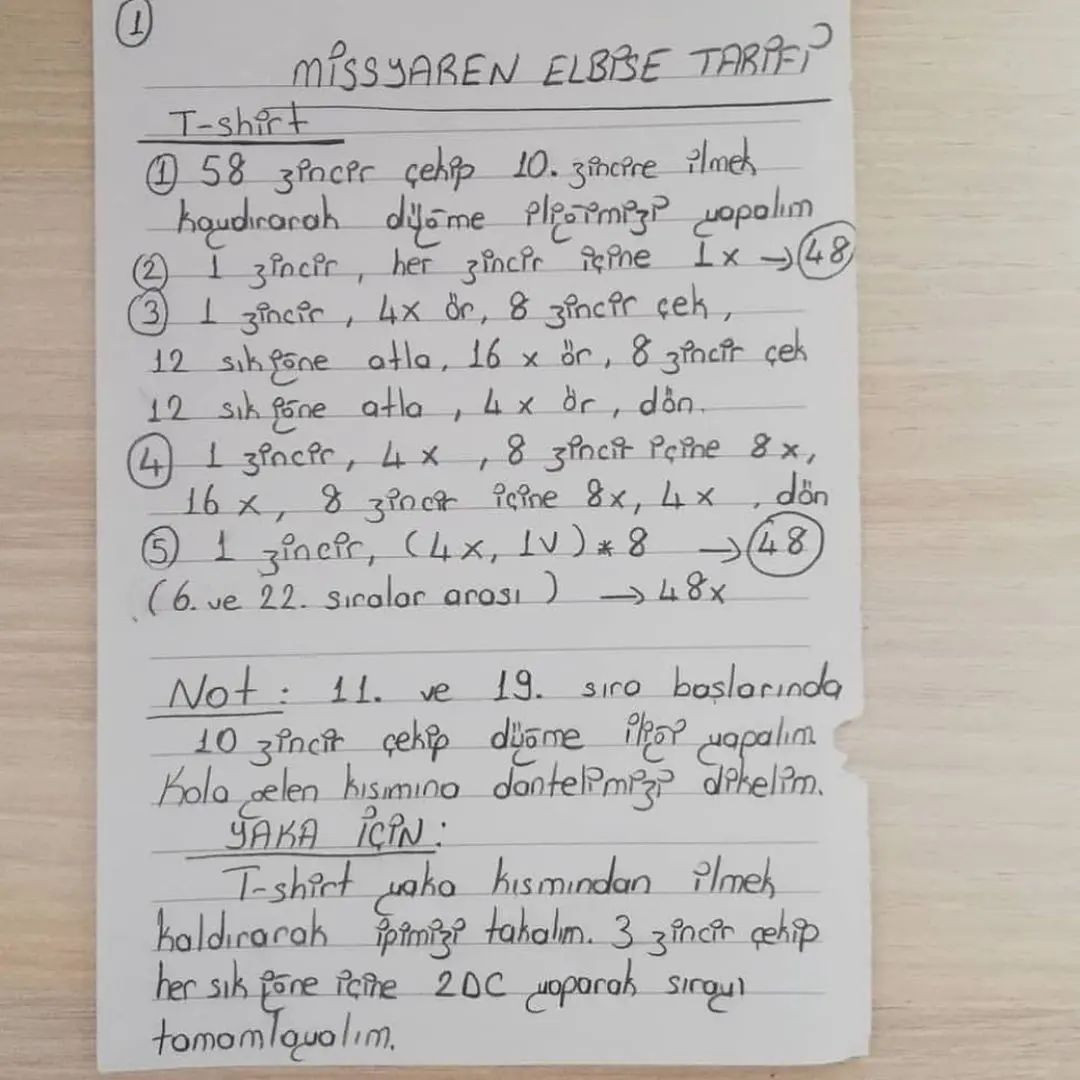 1
MİSSYAREN ELBİSE TARİFİ
T-shirt
① 58 zincir çekip 10. zincire ilmek
kaydırarak düğme iliğimizi yapalım
② 1 zincir, her zincir içine 1x → 48
③ 1 zincir, 4x ör, 8 zincir çek,
12 sık iğne atla, 16 x ör, 8 zincir çek
12 sık iğne atla, 4x ör, dön.
④ 1 zincir, 4x, 8 zincir içine 8x,
16 x, 8 zincir içine 8x, 4x, dön
⑤ 1 zincir, (4x, 1V) * 8 → 48
(6. ve 22. sıralar arası) → 48x
Not: 11. ve 19. sıra başlarında
10 zincir çekip düğme iliği yapalım
Kola gelen kısımına dantelimizi dikelim.
YAKA İÇİN:
T-shirt yaka kısmından ilmek
kaldırarak ipimizi takalım. 3 zincir çekip
her sık iğne içine 2DC yaparak sırayı
tamamlayalım.